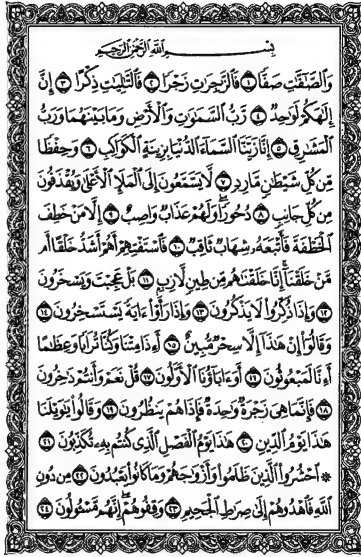 بِسْمِ اللَّهِ الرَّحْمَٰنِ الرَّحِيمِ
وَالصَّٰٓفَّٰتِ صَفًّا ١ فَالزَّٰجِرَٰتِ زَجْرًا ٢ فَالتَّٰلِيَٰتِ ذِكْرًا ٣ إِنَّ
إِلَٰهَكُمْ لَوَٰحِدٌ ٤ رَّبُّ السَّمَٰوَٰتِ وَالْأَرْضِ وَمَا بَيْنَهُمَا وَرَبُّ
الْمَشَٰرِقِ ٥ إِنَّا زَيَّنَّا السَّمَآءَ الدُّنْيَا بِزِينَةٍ الْكَوَاكِبِ ٦ وَحِفْظًا
مِّن كُلِّ شَيْطَٰنٍ مَّارِدٍ ٧ لَّا يَسَّمَّعُونَ إِلَى الْمَلَإِ الْأَعْلَىٰ وَيُقْذَفُونَ
مِن كُلِّ جَانِبٍ ٨ دُحُورًا وَلَهُمْ عَذَابٌ وَاصِبٌ ٩ إِلَّا مَنْ خَطِفَ
الْخَطْفَةَ فَأَتْبَعَهُ شِهَابٌ ثَاقِبٌ ١٠ فَاسْتَفْتِهِمْ أَهُمْ أَشَدُّ خَلْقًا أَم
مَّنْ خَلَقْنَآ إِنَّا خَلَقْنَٰهُم مِّن طِينٍ لَّازِبٍ ١١ بَلْ عَجِبْتَ وَيَسْخَرُونَ
١٢ وَإِذَا ذُكِّرُوا لَا يَذْكُرُونَ ١٣ وَإِذَا رَأَوْا ءَايَةً يَسْتَسْخِرُونَ ١٤
وَقَالُوٓا إِنْ هَٰذَآ إِلَّا سِحْرٌ مُّبِينٌ ١٥ أَءِذَا مِتْنَا وَكُنَّا تُرَابًا وَعِظَٰمًا
أَءِنَّا لَمَبْعُوثُونَ ١٦ أَوَءَابَآؤُنَا الْأَوَّلُونَ ١٧ قُلْ نَعَمْ وَأَنتُمْ دَٰخِرُونَ
١٨ فَإِنَّمَا هِيَ زَجْرَةٌ وَٰحِدَةٌ فَإِذَا هُمْ يَنظُرُونَ ١٩ وَقَالُوا يَٰوَيْلَنَا
هَٰذَا يَوْمُ الدِّينِ ٢٠ هَٰذَا يَوْمُ الْفَصْلِ الَّذِي كُنتُم بِهِ تُكَذِّبُونَ ٢١
۞ احْشُرُوا الَّذِينَ ظَلَمُوا وَأَزْوَٰجَهُمْ وَمَا كَانُوا يَعْبُدُونَ ٢٢ مِن دُونِ
اللَّهِ فَاهْدُوهُمْ إِلَىٰ صِرَٰطِ الْجَحِيمِ ٢٣ وَقِفُوهُمْ إِنَّهُم مَّسْـُٔولُونَ ٢٤